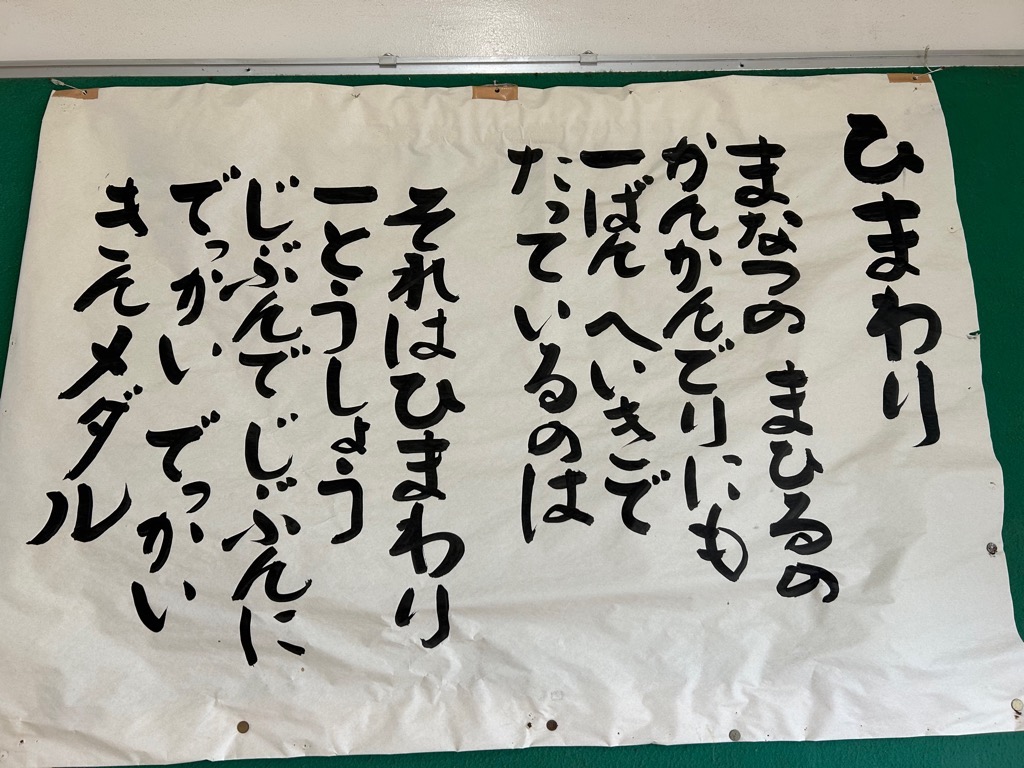 ひまわり
まなつの まひるの
かんかんでりにも
一ばん へいきで
たっているのは
それはひまわり
一とうしょう
じぶんで じぶんに
でっかい でっかい
きんメダル